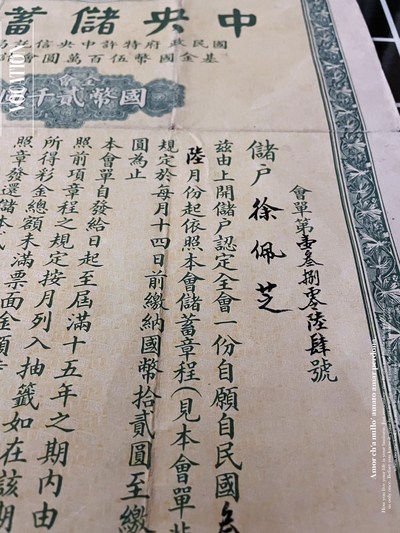 中央儲蓄
國民政府特許中央信託局
基金國幣伍百萬圓會
全會
國幣貳千
會單第壹叁捌零陸肆號
儲戶 徐佩芝
茲由上開儲戶認定全會一份自願自民國叁
陸月份起依照本會儲蓄章程(見本會單背
規定於每月十四日前繳納國幣拾貳圓至繳
圓為止
本會單自發給日起至屆滿十五年之期內由
照前項章程之規定按月列入抽籤如在該期
所得彩金總額未滿票面金額
照章發還儲本
VOCATION
Amor ch'a nullo' amato amar perdona